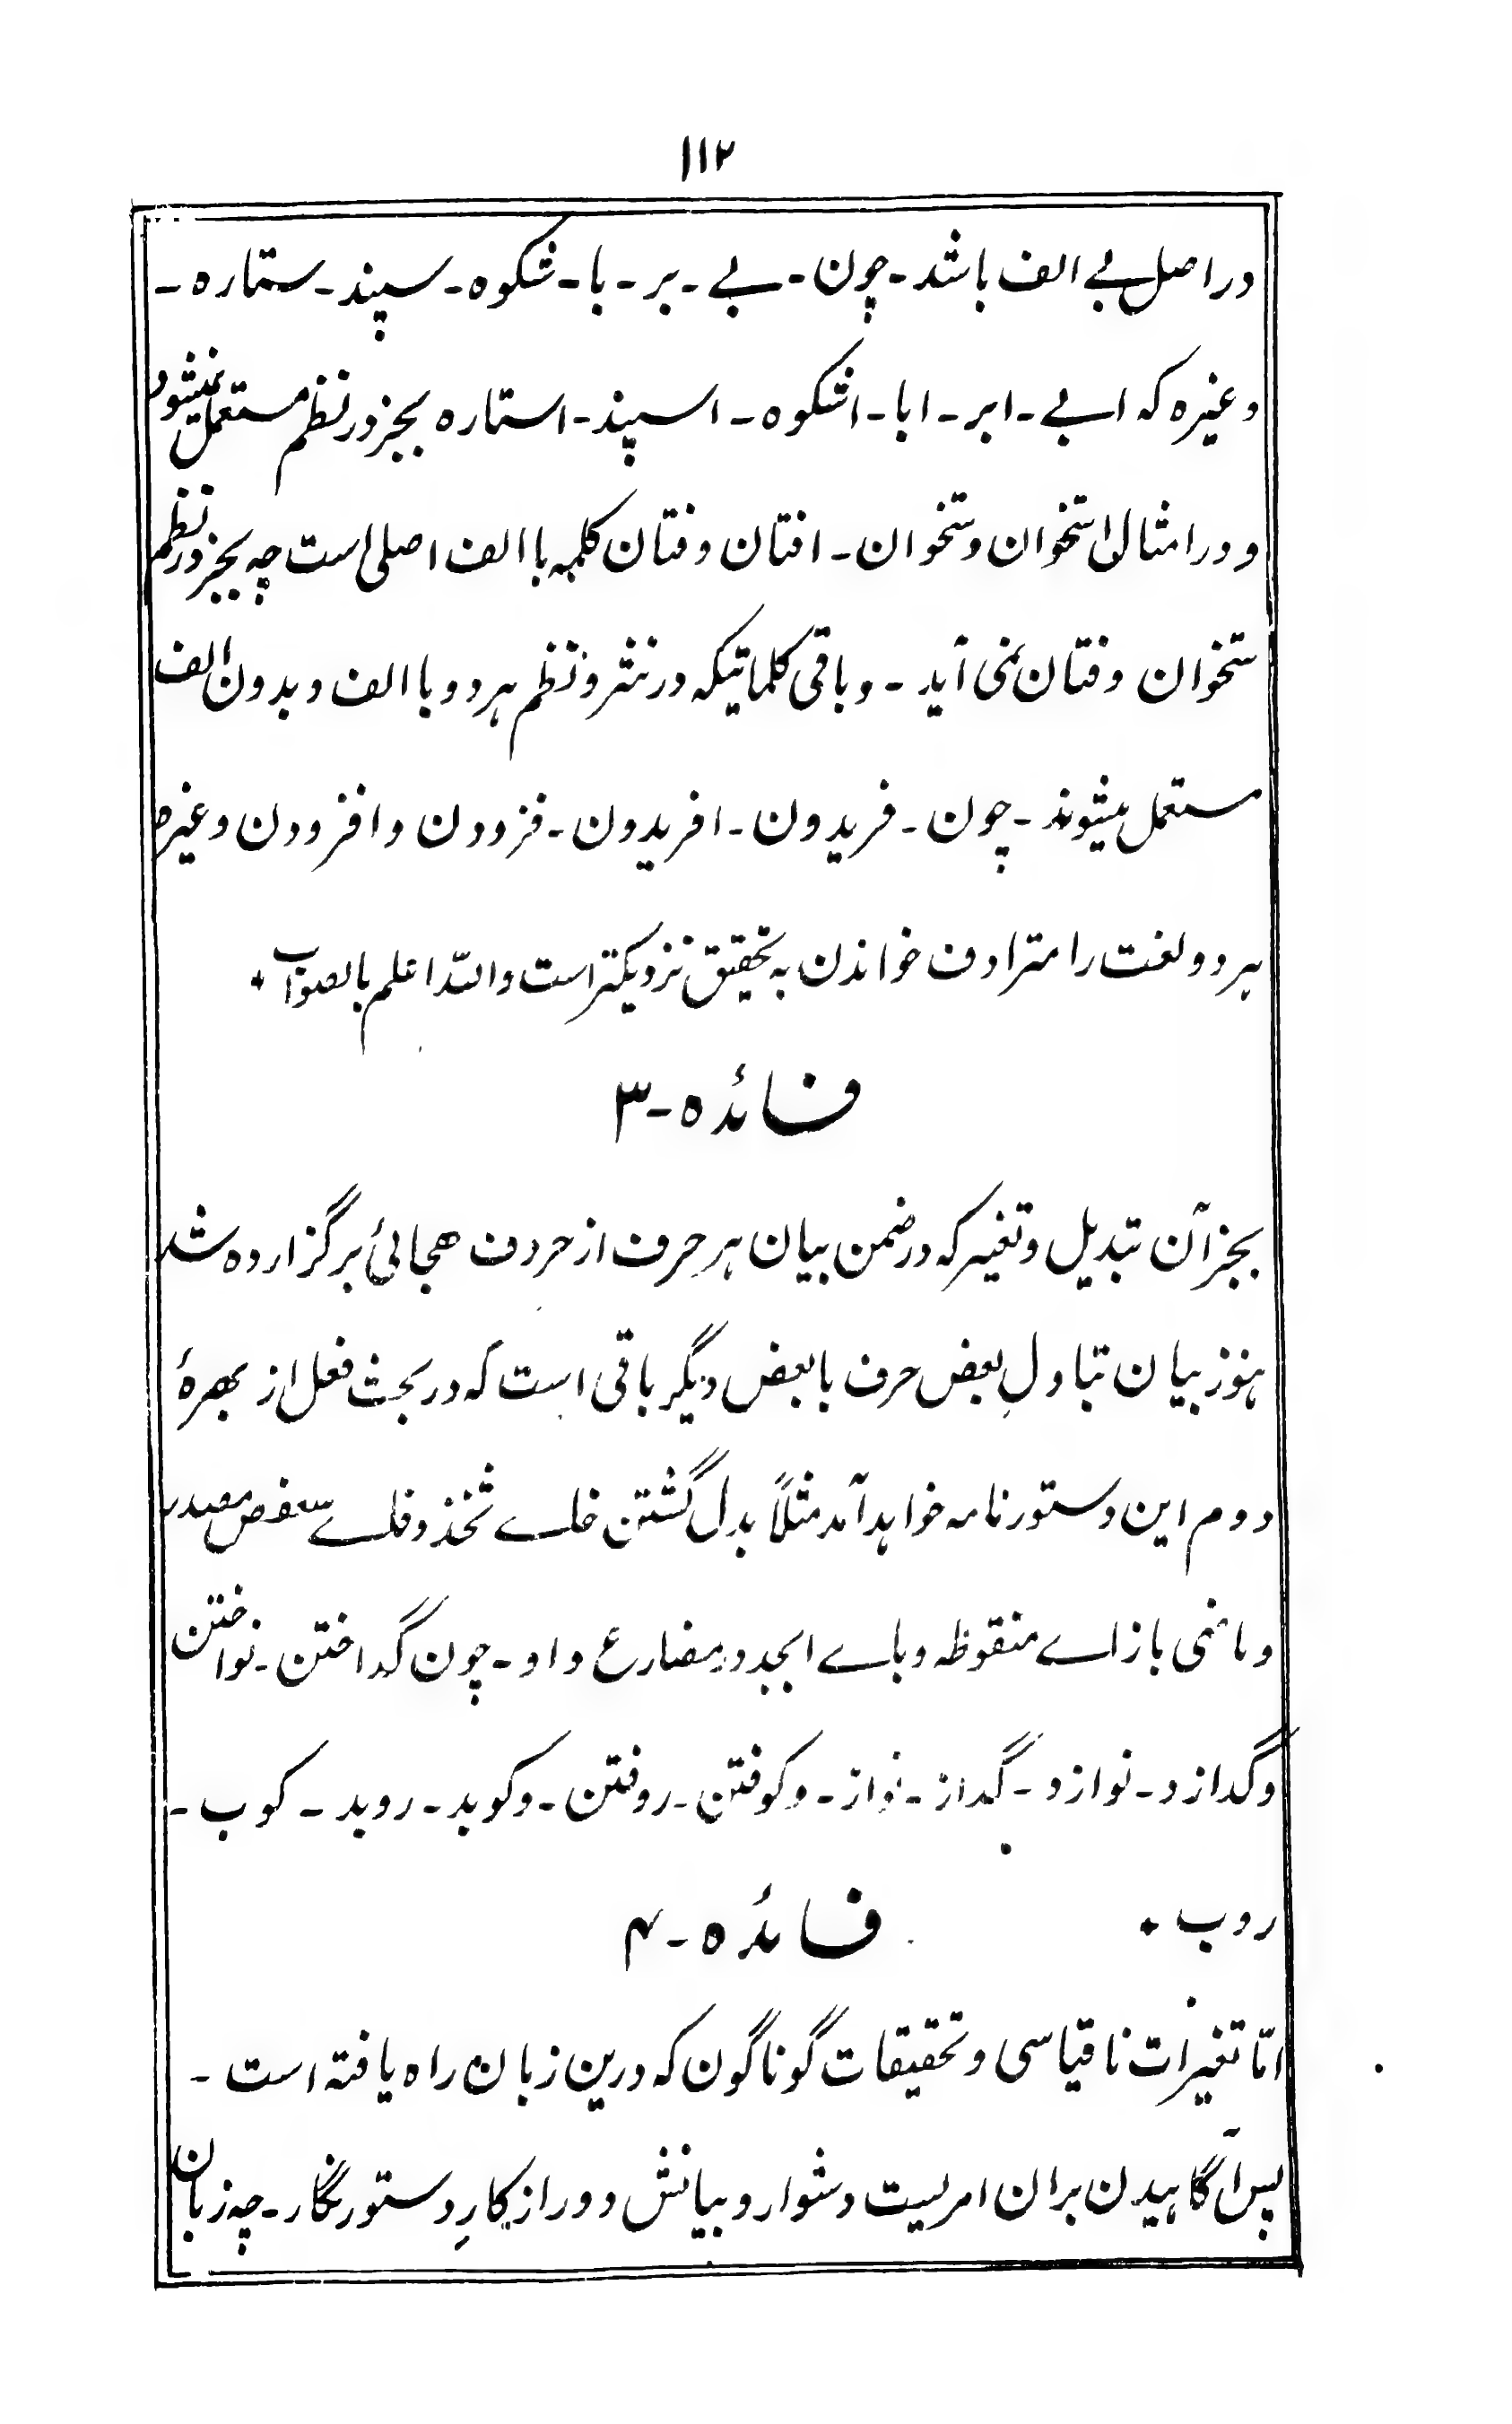 ۱۱۲
در اصل بے الف باشد - چون - بے - بر - با - شکوه - سپند - ستاره -
وغیره که ابے - ابر - ابا - اشکوه - اسپند - استاره بجز در نظم مستعمل نمیشود
و در امثال استخوان و ستخوان - افتان و فتان کلمه با الف اصلی است چه بجز در نظم
ستخوان و فتان نمی آید - و باقی کلماتیکه در نثر و نظم هر دو با الف و بدون الف
مستعمل میشوند - چون - فریدون - افریدون - فزودن و افزودن وغیره
هر دو لغت را مترادف خواندن به تحقیق نزدیکتر است والله اعلم بالصواب ٭
فائده - ۳
بجز آن تبدیل و تغیر که در ضمن بیان هر حرف از حروف هجائی برگزارده شد
هنوز بیان تبادلِ بعض حرف با بعض دیگر باقی است که در بحث فعل از بهرهٔ
دوم این دستور نامه خواهد آمد مثلاً بدل گشتن خاے ثخذ و فاے سعفص مصدر
و ماضی با زاے منقوطه و باے ابجد در مضارع و او - چون گداختن - نواختن
و گدازد - نوازد - گداز - نواز - و کوفتن - روفتن - و کوبد - روبد - کوب -
روب ٭
فائده - ۴
امّا تغیرات ناقیاسی و تحقیقات گوناگون که درین زبان راه یافته است -
پس آگاهیدن بران امریست دشوار و بیانش دور از کارِ دستور نگار - چه زبان